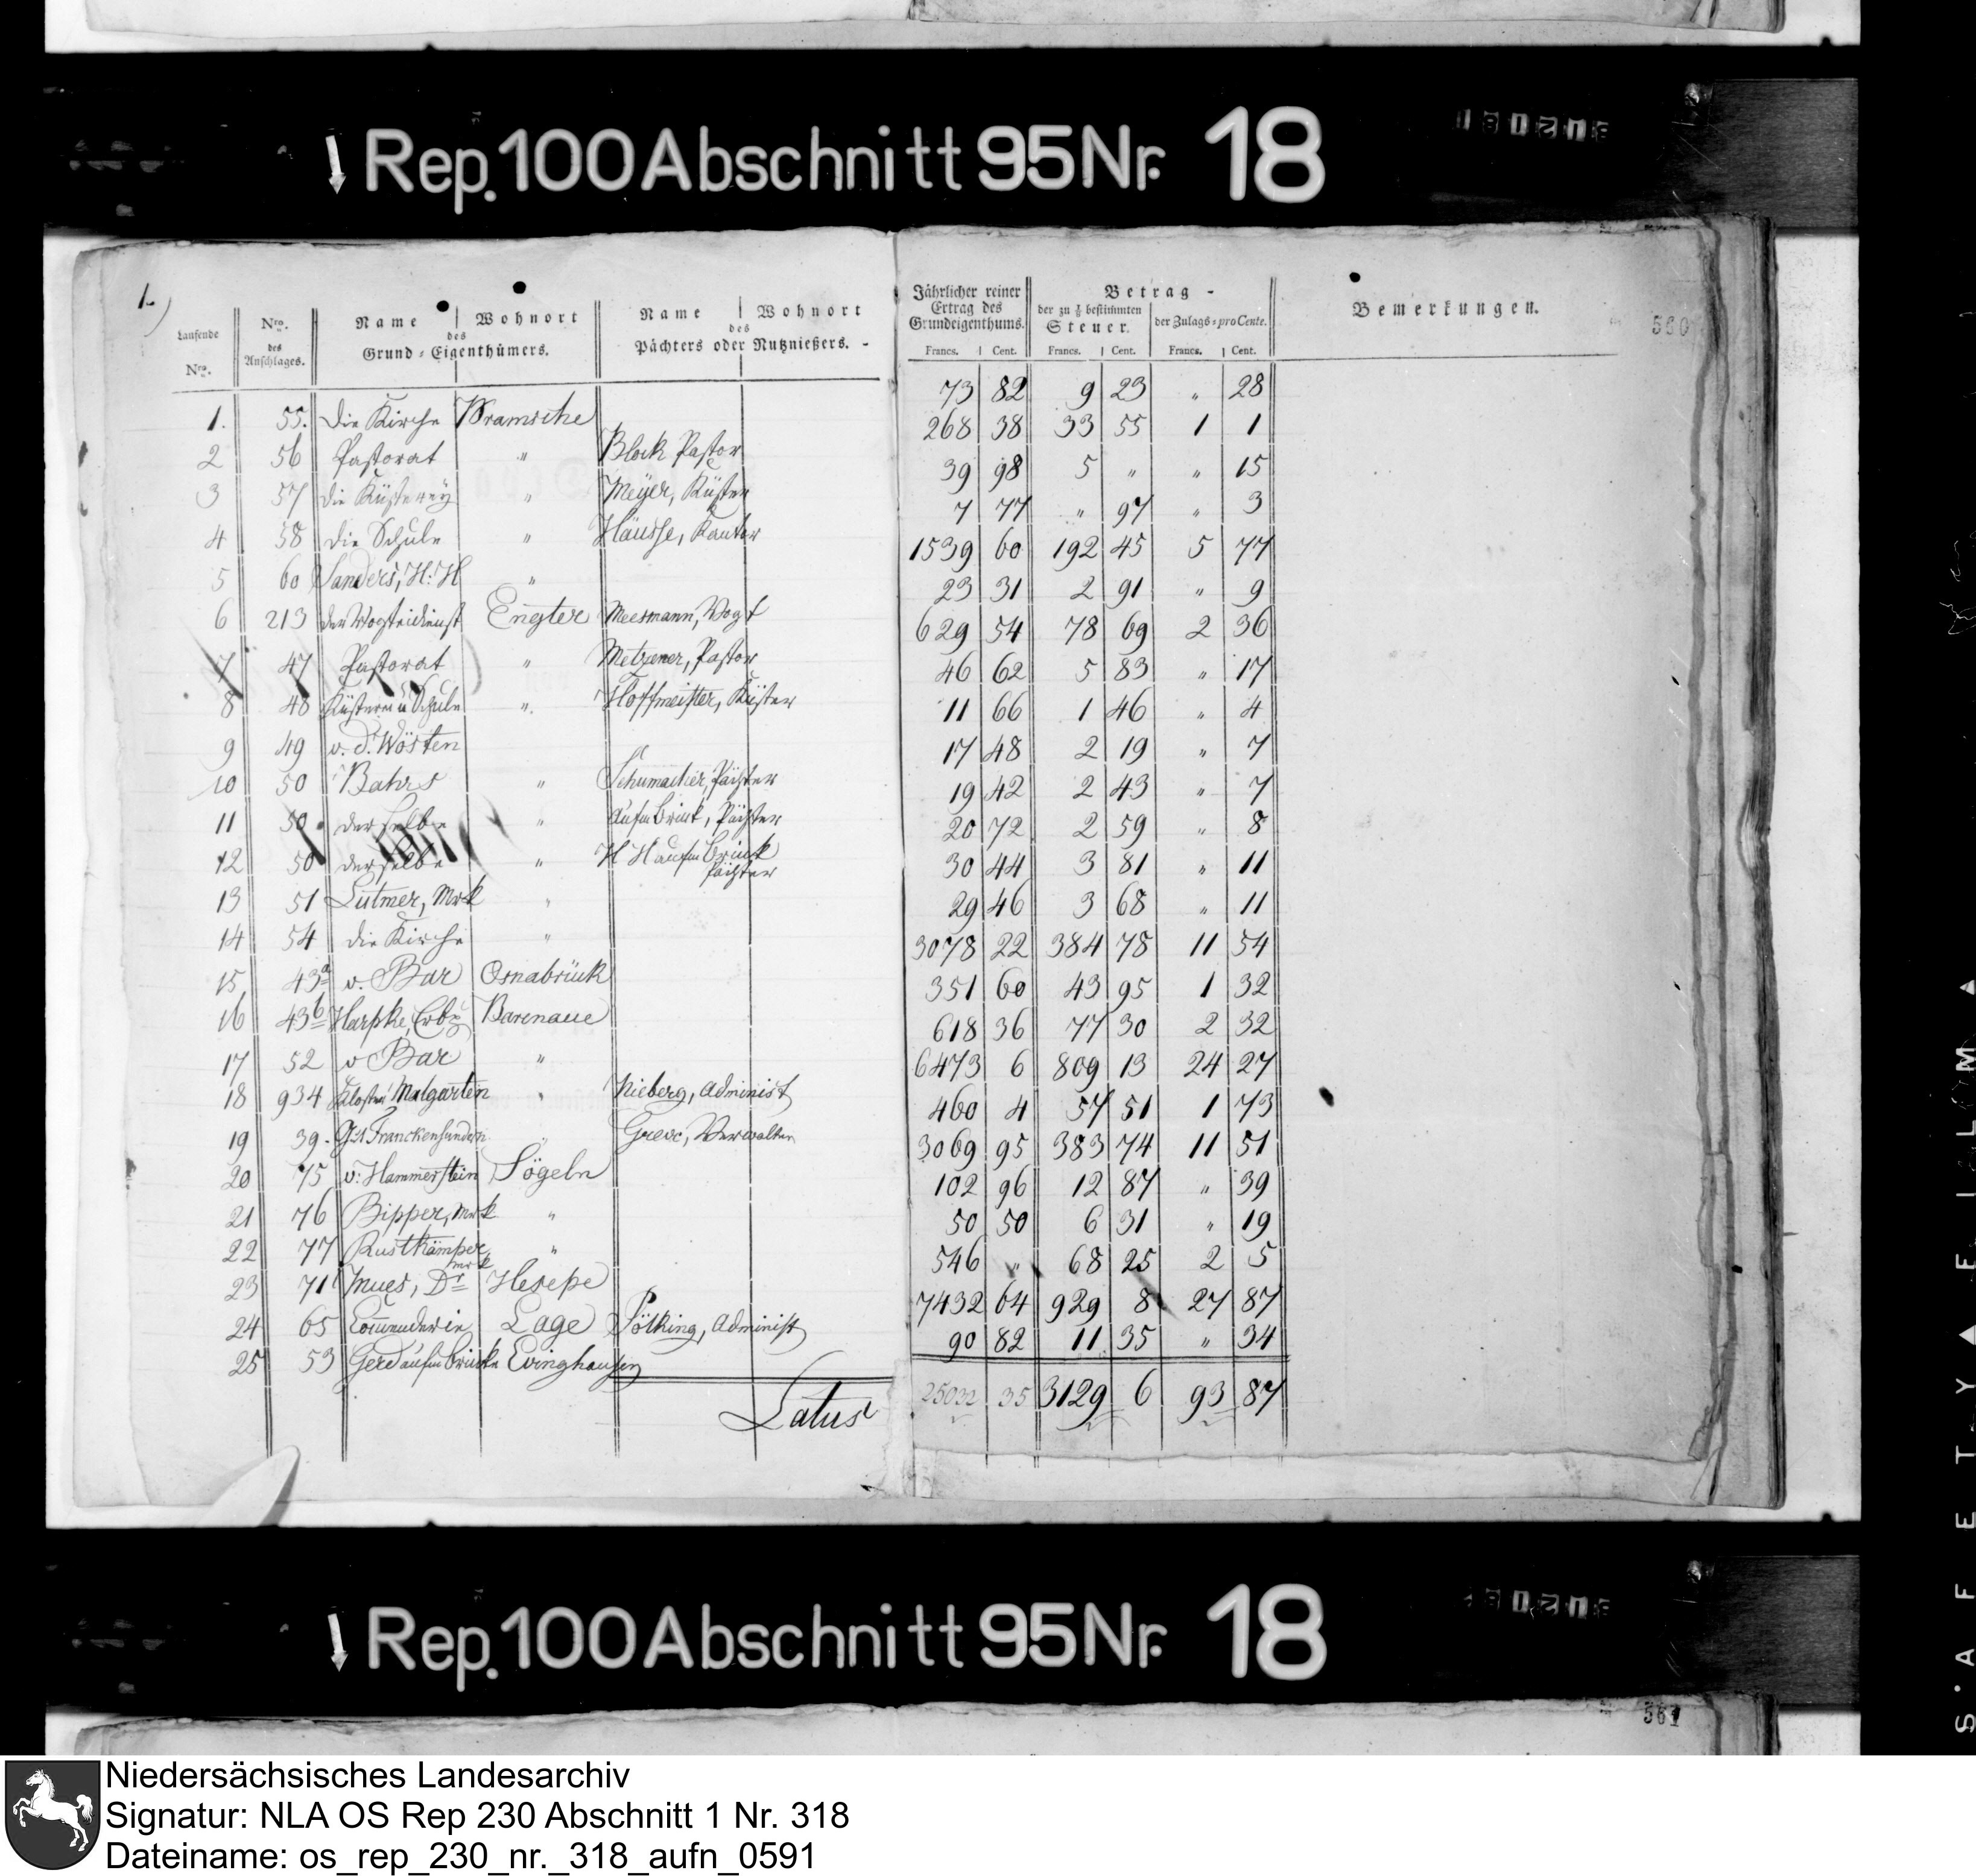 Rep. 100 Abschnitt 95 Nr. 18
1.)
Laufende Nro. | Nro. des Anschlages. | Name | Wohnort des Grund-Eigenthümers. | Name | Wohnort des Pächters oder Nutznießers. | Jährlicher reiner Ertrag des Grundeigenthums. Francs. Cent. | Betrag der zu ⅛ bestimmten Steuer. Francs. Cent. | der Zulags-proCente. Francs. Cent. | Bemerkungen.
560
1. 55. die Kirche Bramsche 73 82 9 23 " 28
2 56 Pastorat " Block Pastor 268 38 33 55 1 1
3 57 die Küsterey " Meyer, Küster 39 98 5 " " 15
4 58 die Schule " Häusse, Kantor 7 77 " 97 " 3
5 60 Sanders, H: H " 1539 60 192 45 5 77
6 213 der Vogteidienst Engter Meesmann, Vogt 23 31 2 91 " 9
7 47 Pastorat " Metzener, Pastor 629 54 78 69 2 36
8 48 Küsterei u Schule " Hoffmeister, Küster 46 62 5 83 " 17
9 49 v. d. Wösten 11 66 1 46 " 4
10 50 Bahrs " Schumacher, Pächter 17 48 2 19 " 7
11 50 derselbe " aufm Brink, Pächter 19 42 2 43 " 7
12 50 derselbe " H H aufm Brink Pächter 20 72 2 59 " 8
13 51 Lutmer, Mrk " 30 44 3 81 " 11
14 54 die Kirche " 29 46 3 68 " 11
15 43a v. Bar Osnabrück 3078 22 384 78 11 54
16 43b Harpke, Erbp Barenaue 351 60 43 95 1 32
17 52 v Bar " 618 36 77 30 2 32
18 934 Kloster Malgarten " Nieberg, Administ 6473 6 809 13 24 27
19 39. Gut Franckensundern " Greve, Verwalter 460 4 57 51 1 73
20 75 v: Hammerstein Sögeln 3069 95 383 74 11 51
21 76 Bipper, Mrk " 102 96 12 87 " 39
22 77 Rustkämper mrk " 50 50 6 31 " 19
23 71 Mues, Dr Hesepe 546 " 68 25 2 5
24 65 Commenderie Lage Pölking, Administ 7432 64 929 8 27 87
25 53 Gerd aufm Brinke Evinghausen 90 82 11 35 " 34
Latus 25032 35 3129 6 93 87
Rep. 100 Abschnitt 95 Nr. 18
561
Niedersächsisches Landesarchiv
Signatur: NLA OS Rep 230 Abschnitt 1 Nr. 318
Dateiname: os_rep_230_nr._318_aufn_0591